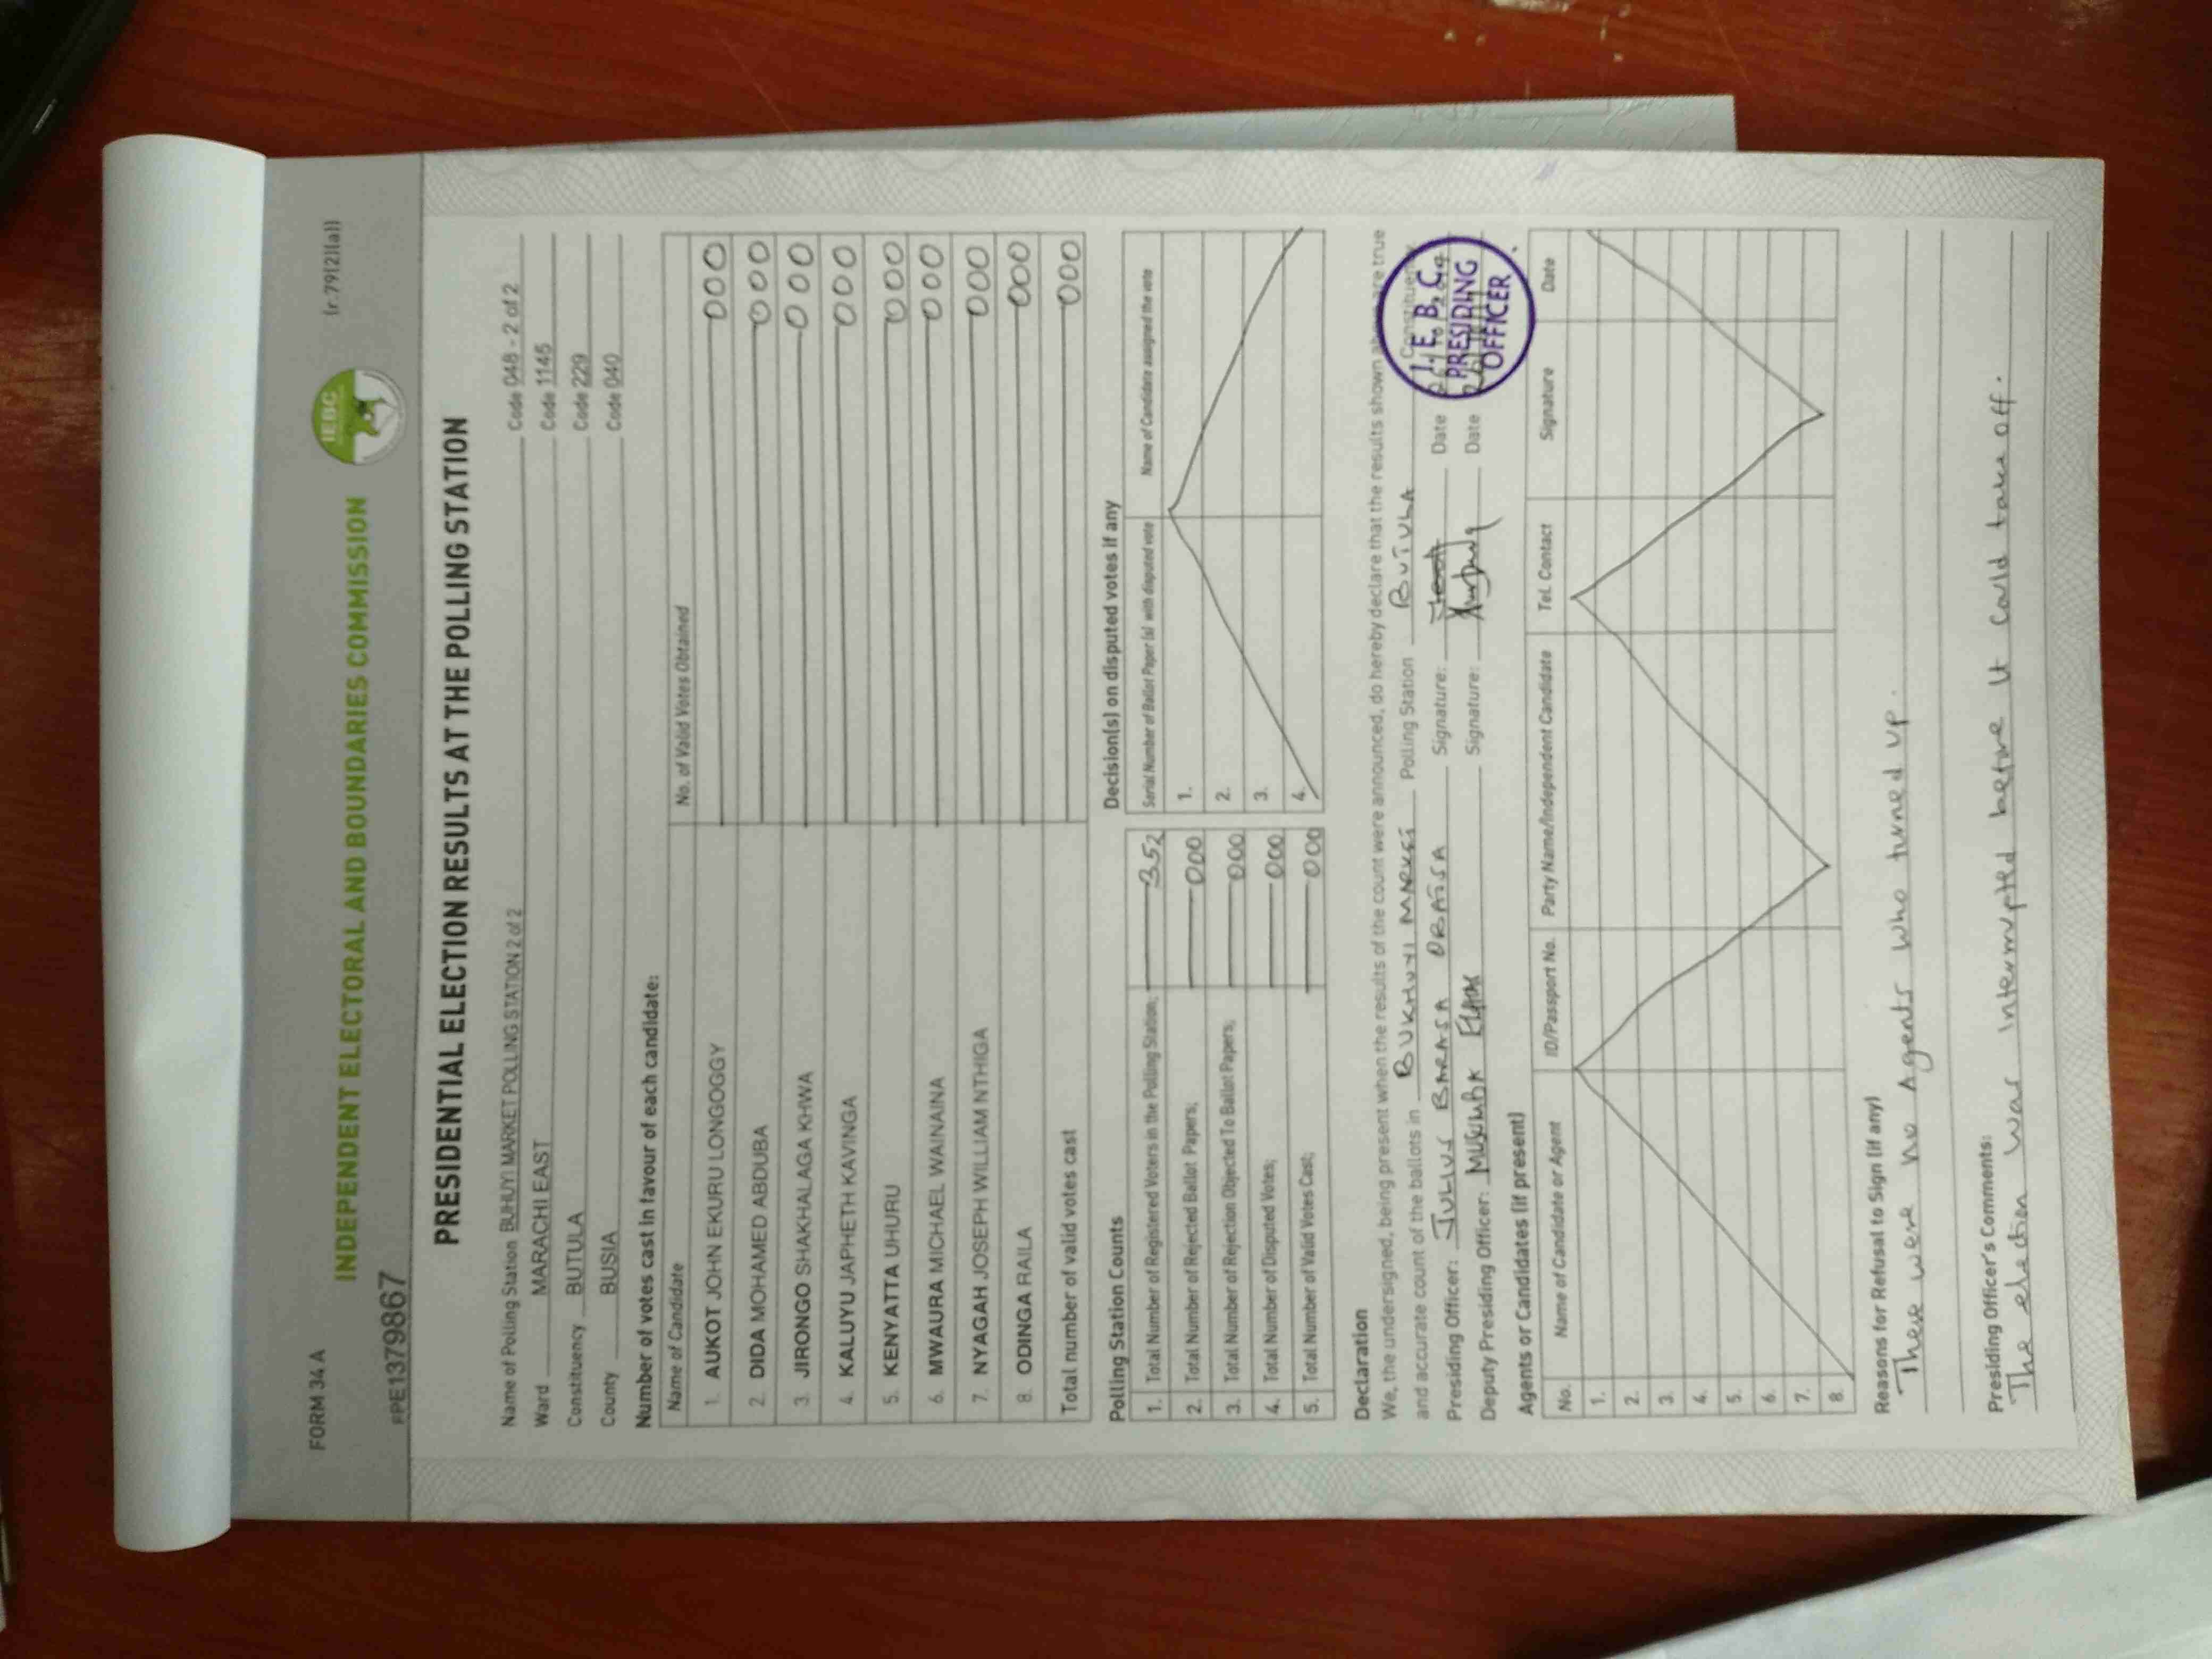 FORM 34 A
(r.79(2)(a))
INDEPENDENT ELECTORAL AND BOUNDARIES COMMISSION
IEBC
PPE1379867
PRESIDENTIAL ELECTION RESULTS AT THE POLLING STATION
Name of Polling Station BUHUYI MARKET POLLING STATION 2 of 2 Code 048 - 2 of 2
Ward MARACHI EAST Code 1145
Constituency BUTULA Code 229
County BUSIA Code 040
Number of votes cast in favour of each candidate:
Name of Candidate No. of Valid Votes Obtained
1. AUKOT JOHN EKURU LONGOGGY 000
2. DIDA MOHAMED ABDUBA 000
3. JIRONGO SHAKHALAGA KHWA 000
4. KALUYU JAPHETH KAVINGA 000
5. KENYATTA UHURU 000
6. MWAURA MICHAEL WAINAINA 000
7. NYAGAH JOSEPH WILLIAM NTHIGA 000
8. ODINGA RAILA 000
Total number of valid votes cast 000
Polling Station Counts
1. Total Number of Registered Voters in the Polling Station; 352
2. Total Number of Rejected Ballot Papers; 000
3. Total Number of Rejection Objected To Ballot Papers; 000
4. Total Number of Disputed Votes; 000
5. Total Number of Valid Votes Cast; 000
Decision(s) on disputed votes if any
Serial Number of Ballot Paper (s) with disputed vote Name of Candidate assigned the vote
1.
2.
3.
4.
Declaration
We, the undersigned, being present when the results of the count were announced, do hereby declare that the results shown above are true
and accurate count of the ballots in BUKHUYI MARKET Polling Station BUTULA Constituency
Presiding Officer: JULIUS BARASA Signature: Date
Deputy Presiding Officer: Signature: Date
I. E. B. C.
PRESIDING
OFFICER
Agents or Candidates (if present)
No. Name of Candidate or Agent ID/Passport No. Party Name/Independent Candidate Tel. Contact Signature Date
1.
2.
3.
4.
5.
6.
7.
8.
Reasons for Refusal to Sign (if any)
There were no Agents who turned up.
Presiding Officer's Comments:
The election was interrupted before it could take off.